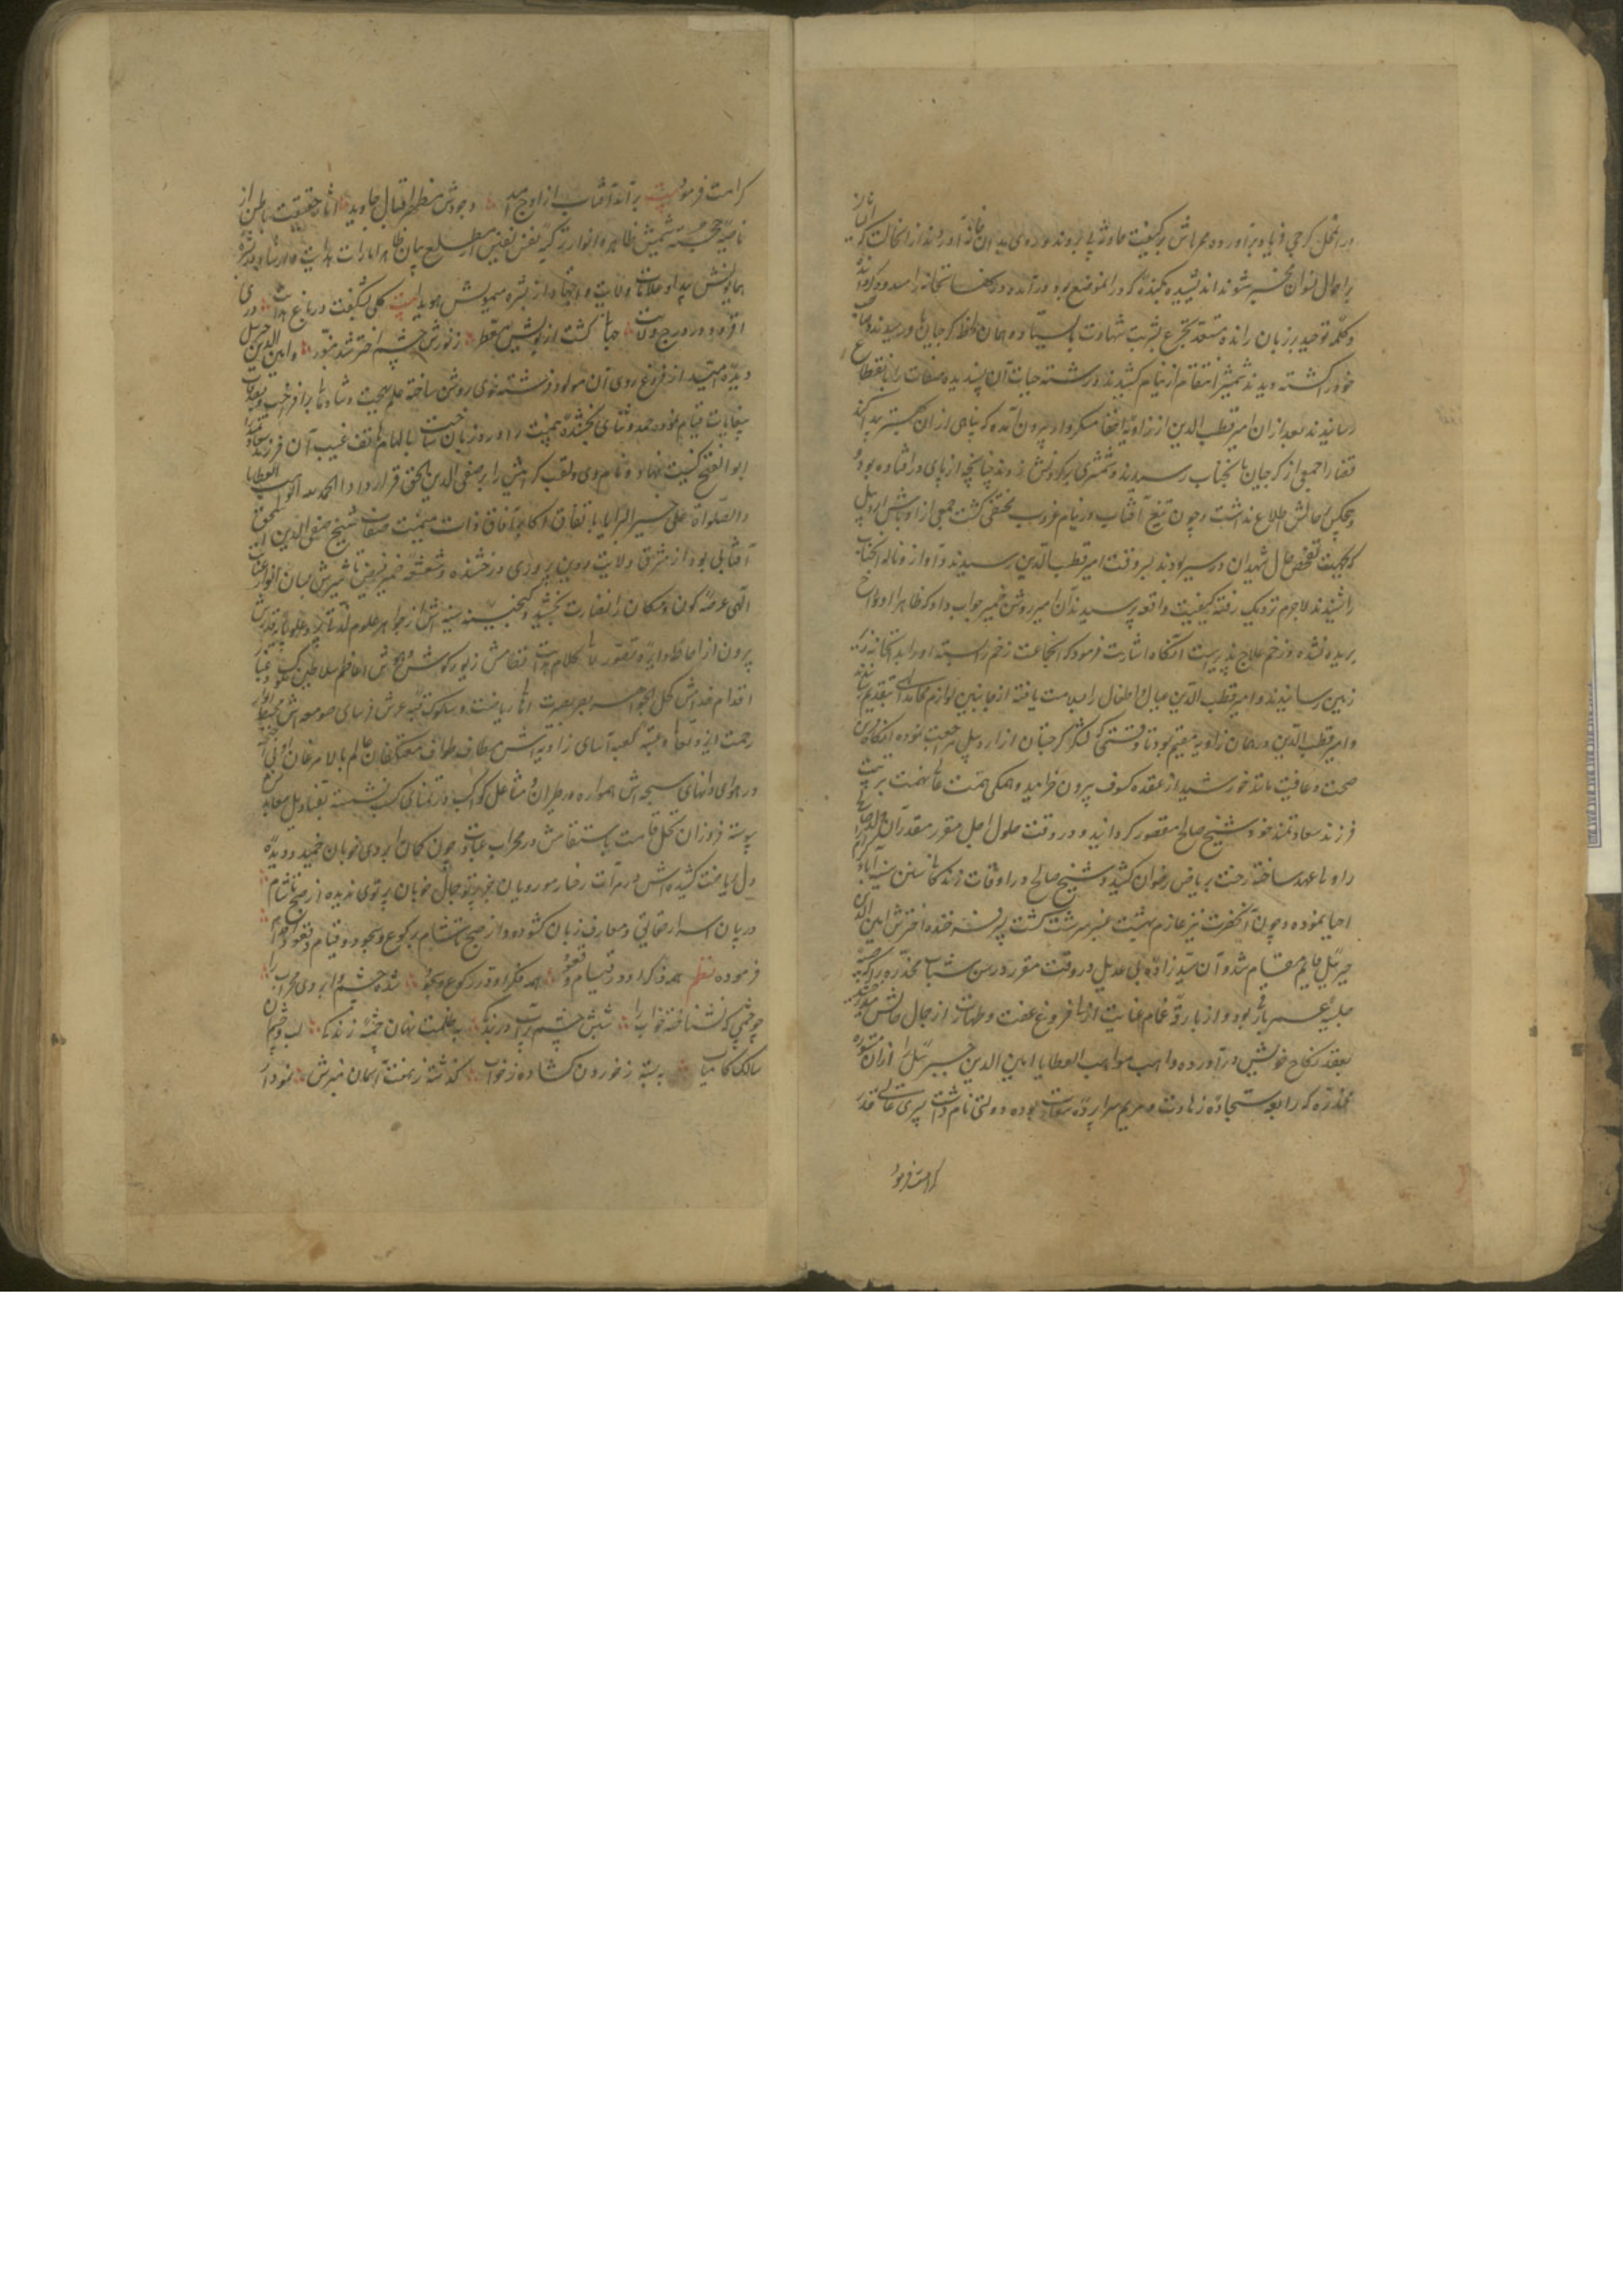 در انحال کرجی فریاد برآورده همراهانش بر کیفیت حادثه پی بردند و روی بدان خانه آوردند از انحالت که
بر احوال نسوان مخبر شوند اندیشیده کنیزک که در انموضع بود درآمده در کنف استحانه را مسدود کرد
و کلمه توحید بر زبان رانده مستعد تجرع شربت شهادت بایستاد و همان لحظه کرجیان در رسیدند و صاحب
خود را کشته دیدند شمشیر انتقام از نیام کشیدند و رشته حیات آن پسندیده صفات را بانقطاع
رسانیدند بعد از ان میر قطب الدین از زاویه اختفا متنکروار بیرون آمده که پناهی از ان بهتر پیدا کند
قضا را جمعی از کرجیان بانجناب رسیدند و شمشیری بر کردنش زدند چنانچه از پای در افتاده بود
و هیچکس بر حالش اطلاع نداشت و چون تیغ آفتاب در نیام غروب مختفی کشت جمعی از اوباش اردبیل
که بجهت تفحص حال شهیدان در سیر بودند بسر وقت امیر قطب الدین رسیدند و آواز و ناله آنجناب
را شنیدند لاجرم نزدیک رفته کیفیت واقعه پرسیدند آن امیر روشن ضمیر جواب داد که ظاهرا اوداج
بریده نشده و زخم علاج پذیرست انکاه اشارت فرمود که انجماعت زخم را بسته او را بدانخانه زیر
زمین رسانیدند و امیر قطب الدین عیال و اطفال را بسلامت یافته از جانبین لوازم محامد الهی بتقدیم رسانیدند
و امیر قطب الدین در همان زاویه مقیم بود تا وقتی که لشکر کرجیان از اردبیل مراجعت نموده انکاه قرین
صحت و عافیت مانند خورشید از عقده کسوف بیرون خرامید و همکی همت عالی نهمت بر تربیت
فرزند سعادتمند خود شیخ صالح مقصور کردانید و در وقت حلول اجل مقرر مقدر آن
را ولی عهد ساخته رخت بریاض رضوان کشید و شیخ صالح در اوقات زندکانی سنن سنیه آباء کرام
احیا نموده و چون آنحضرت نیز عازم بهشت عنبر سرشت کشت پسر فرخنده اخترش امین الدین
جبرئیل قایم مقام شد و آن سید زاده بی عدیل در وقت مقرر در سن شباب مخدره را که
حلیه عمر باز بود و از بارقه غمام عنایت ازلی فروغ عفت و طهارت از جمال حالش میدرخشید
بعقد نکاح خویش درآورده واهب مواهب العطایا امین الدین جبرئیل را از ان مستوره
مخدره که رابعه سجاده زهادت و مریم سرا پرده سعادت بوده دولتی نام داشت پسری عالی قدر
کرامت فرمود
کرامت فرمود بیت برآمد آفتاب از اوج امید وجودش مظهر اقبال جاوید آثار حقیقت باطن از
ناصیه خجسته شمیمش ظاهر و انوار تزکیه نفس نفیس از مطلع پیان ظاهر امارات هدایت و ارشاد از بشره
همایونش پیدا و علامات ولایت و اجتهاد از بشره میمونش هویدا بیت کلی بشکفت در باغ هدایت دری
افزود در درج ولایت جهان کشت از بویش معطر ز نورش چشم اختر شد منور و امین الدین جبرئیل
دیده امید از فروغ روی آن مولود فرشته خوی روشن ساخته علم بهجت و شادمانی برافراخت و بعد از تقدیم
بغایات قیام نموده حمد و ثنای بخشنده بیمنت را ورد زبان ساخت بالهام هاتف غیب آن فرزند سعادتمند را
ابو الفتح کنیت نهاد و نام وی و لقب کرامیش را بر صفی الدین اسحق قرار داد الحمد لله الواهب العطایا
والصلوة علی خیر البرایا باتفاق اکابر آفاق ذات میمنت صفات شیخ صفی الدین اسحق
آفتابی بود از مشرق ولایت و دین پروری درخشنده و شعشعه ضمیر فیض تاثیرش بسان انوار عنایت
الهی عرصه کون و مکان را نضارت بخشید و کنجینه سینه اش از جواهر علوم لدنی پر و علو پایه قدرش
بیرون از احاطه دایره تصور کلام هدایت انتظامش زیور کوش هوش اعاظم سلاطین کشور و غبار
اقدام خدامش کحل الجواهر بصر بصیرت ارباب ریاضت و سلوک قبه عرش فرسای صومعه اش مهبط انوار
رحمت ایزد تعالی و عتبه کعبه آسای زاویه اش مطاف طواف معتکفان عالم بالا مرغان اولی اجنحه
در هوای دانهای سبحه اش همواره در طیران و مشاعل کواکب در تمنای کسب نسبت بقنادیل معابدش
پیوسته فروزان نخل قامت باستقامتش در محراب عبادت چون کمان ابروی خوبان خمیده و دیده
دل ریاضت کشیده اش در مرآت رخسار مهرویان بجز پرتو جمال خوبان پرتوی ندیده از صبح تا شام
در بیان اسرار حقانی و معارف زبان کشوده و از صبح تا شام برکوع و سجود و قیام و قعود اقدام
فرموده نظم همه ذکر او در قیام و قعود همه فکر او در رکوع و سجود شده چشم و ابروی محراب را
چو چشمی که نشناخته خواب را شبش چشم پر آب در بندکی بظلمت نهان چشمه زندکی لب و چشم آن
سالک کامیاب ببسته ز خوردن کشاده ز خواب کذشته ز هفت آسمان منبرش نمودار